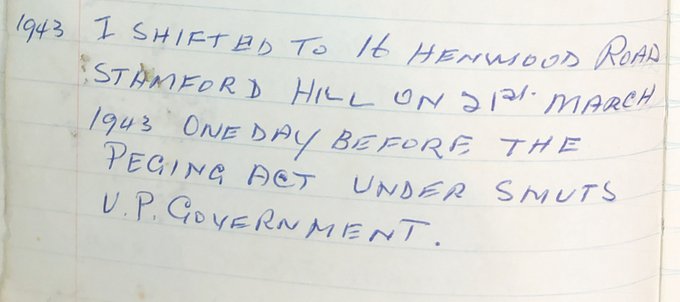 1943 I SHIFTED TO 16 HENWOOD ROAD
STAMFORD HILL ON 21st. MARCH
1943 ONE DAY BEFORE THE
PEGING ACT UNDER SMUTS
U.P. GOVERNMENT.